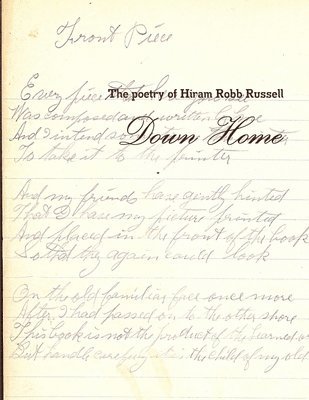 Front Piece
The poetry of Hiram Robb Russell
Down Home
Every piece
Was composed and written by me
And I intend so
To take it to the printer
And my friends have gently hinted
That I have my picture printed
And placed in the front of the book
So that they again could look
On the old familiar face once more
After I had passed on to the other shore
This book is not the product of the learned or
But handle carefully it is the child of my old